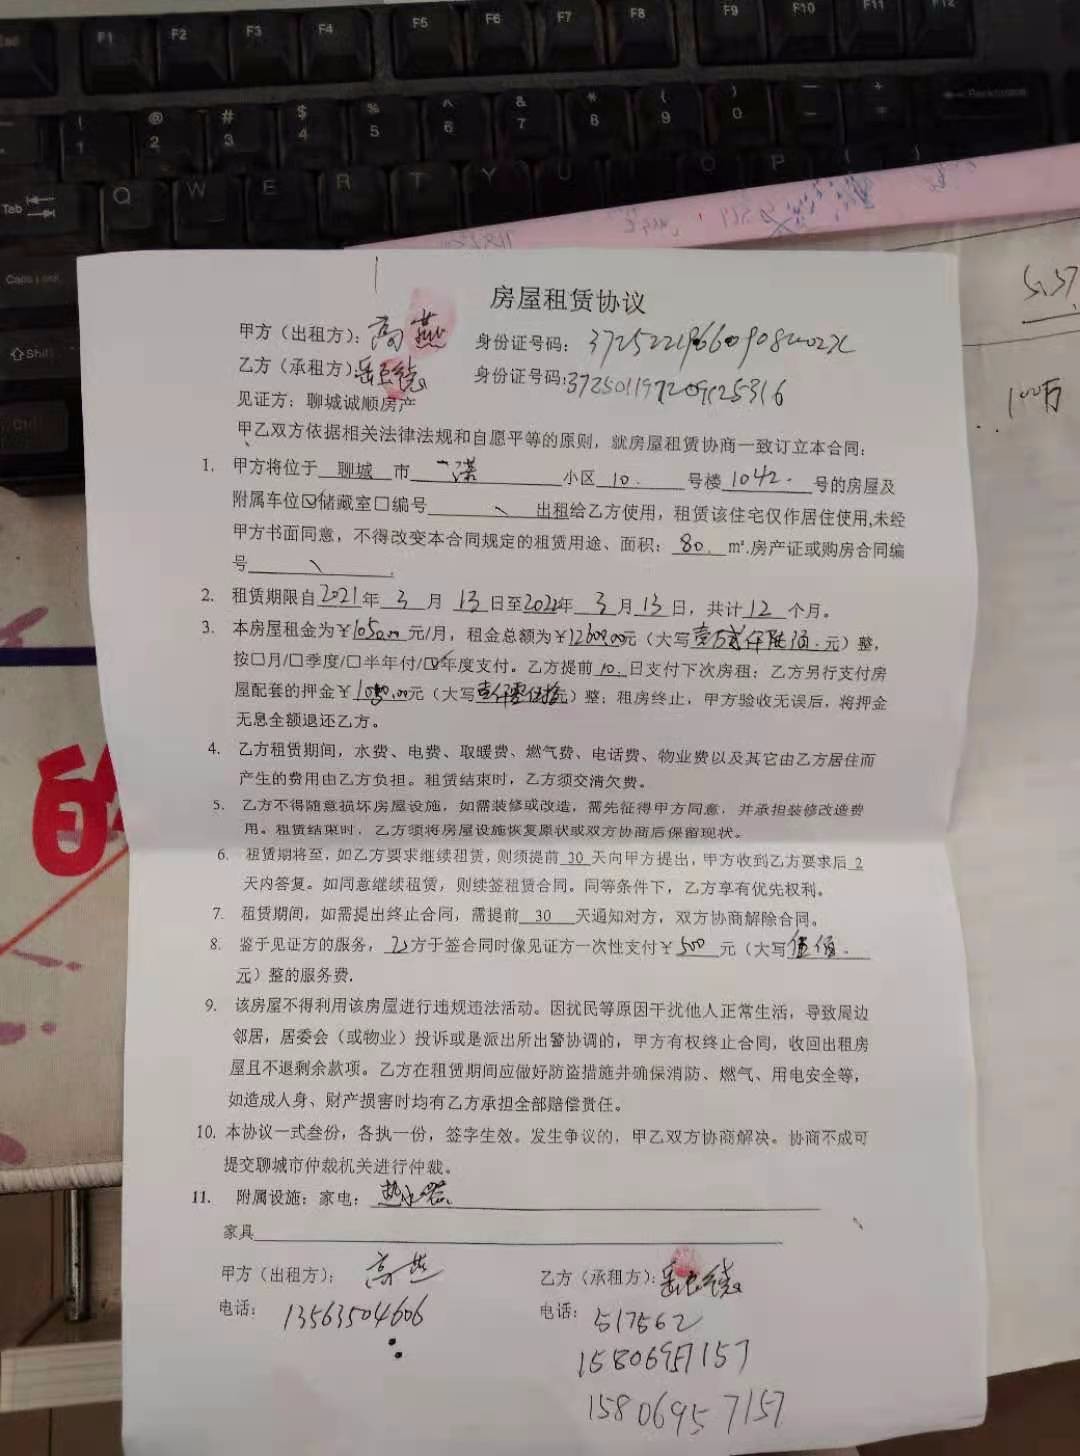 Esc F1 F2 F3 F4 F5 F6 F7 F8 F9 F10 F11 F12
! 1 @ 2 # 3 $ 4 % 5 ^ 6 & 7 * 8 ( 9 ) 0 Backspace
Tab Q W E R T Y U I O P
Caps Lock
Shift
Ctrl
100万
房屋租赁协议
甲方（出租方）：高燕 身份证号码：
乙方（承租方） 身份证号码:
见证方：聊城诚顺房产
甲乙双方依据相关法律法规和自愿平等的原则，就房屋租赁协商一致订立本合同：
1. 甲方将位于 聊城 市 一诺 小区 10. 号楼 1042. 号的房屋及
附属车位☑储藏室☐编号 出租给乙方使用，租赁该住宅仅作居住使用,未经
甲方书面同意，不得改变本合同规定的租赁用途、面积：80. ㎡.房产证或购房合同编
号
2. 租赁期限自2021年 3 月 13 日至2022年 3 月 13 日，共计 12 个月。
3. 本房屋租金为￥1050.00元/月，租金总额为￥12600.00元（大写壹万贰仟陆佰.元）整，
按☐月/☐季度/☐半年付/☑年度支付。乙方提前 10. 日支付下次房租；乙方另行支付房
屋配套的押金￥1050.00元（大写壹仟零伍拾元）整；租房终止，甲方验收无误后，将押金
无息全额退还乙方。
4. 乙方租赁期间，水费、电费、取暖费、燃气费、电话费、物业费以及其它由乙方居住而
产生的费用由乙方负担。租赁结束时，乙方须交清欠费。
5. 乙方不得随意损坏房屋设施，如需装修或改造，需先征得甲方同意，并承担装修改造费
用。租赁结束时，乙方须将房屋设施恢复原状或双方协商后保留现状。
6. 租赁期将至，如乙方要求继续租赁，则须提前 30 天向甲方提出，甲方收到乙方要求后 2
天内答复。如同意继续租赁，则续签租赁合同。同等条件下，乙方享有优先权利。
7. 租赁期间，如需提出终止合同，需提前 30 天通知对方，双方协商解除合同。
8. 鉴于见证方的服务， 乙方于签合同时像见证方一次性支付￥500 元（大写伍佰.
元）整的服务费.
9. 该房屋不得利用该房屋进行违规违法活动。因扰民等原因干扰他人正常生活，导致周边
邻居，居委会（或物业）投诉或是派出所出警协调的，甲方有权终止合同，收回出租房
屋且不退剩余款项。乙方在租赁期间应做好防盗措施并确保消防、燃气、用电安全等，
如造成人身、财产损害时均有乙方承担全部赔偿责任。
10. 本协议一式叁份，各执一份，签字生效。发生争议的，甲乙双方协商解决。协商不成可
提交聊城市仲裁机关进行仲裁。
11. 附属设施：家电：热水器
家具
甲方（出租方）： 高燕 乙方（承租方）：
电话： 13563504606 电话： 517562
15806957157
15806957157